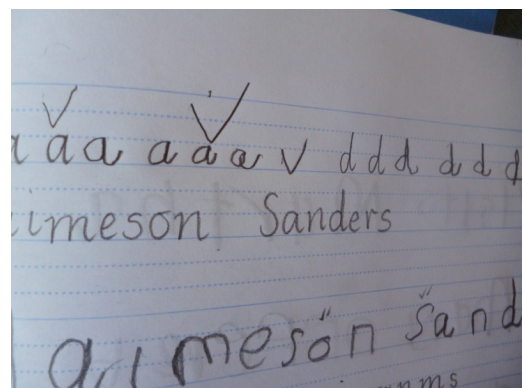 a a a a a a v d d d d d d
imeson Sanders
aimeson Sand